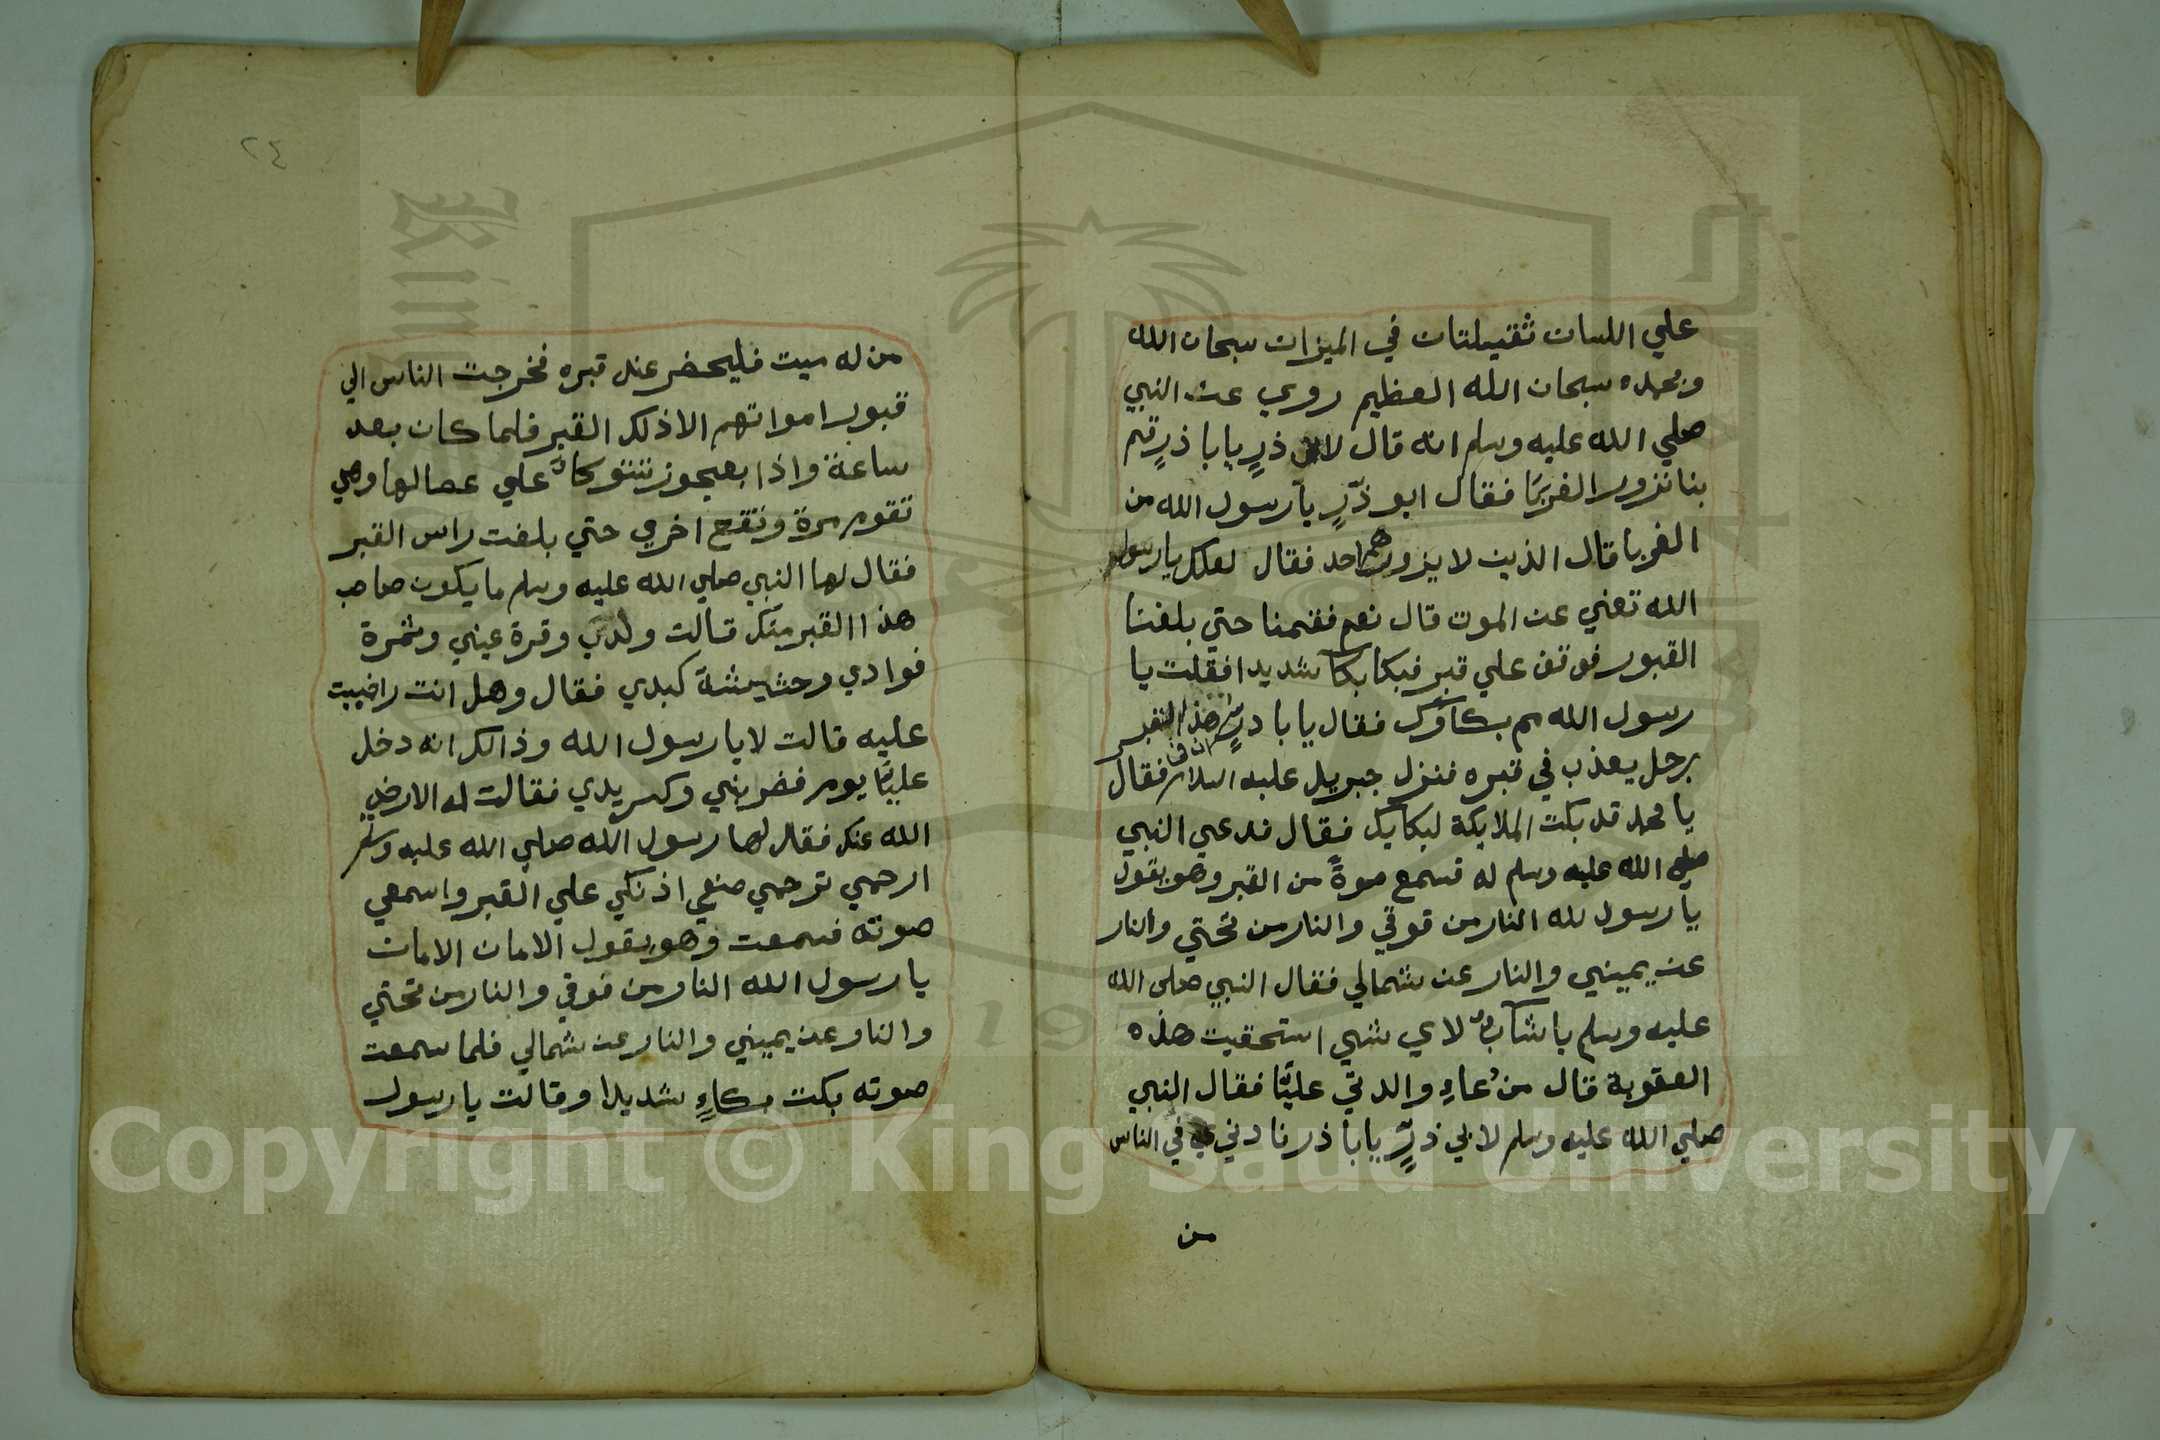 علي اللسان ثقيلتان في الميزان سبحان الله
وبحمده سبحان الله العظيم روي عن النبي
صلي الله عليه وسلم انه قال لابي ذرٍ يابا ذرٍ قم
بنا نزور الغربا فقال ابو ذرٍّ يا رسول الله من
الغربا قال الذين لا يزورهم احد فقال لعلك يا رسول
الله تعني عن الموت قال نعم فقمنا حتي بلغنا
القبور فوقف علي قبر فبكا بكآ شديدا فقلت يا
رسول الله مم بكاوك فقال يا با درٍ ان في هذا القبر
رجل يعذب في قبره فنزل جبريل عليه السلام فقال
يا محمد قد بكت الملايكة لبكايك فقال فدعي النبي
صلي الله عليه وسلم له فسمع صوةً من القبر وهو يقول
يا رسول لله النار من فوقي والنار من تحتي والنار
عن يميني والنار عن شمالي فقال النبي صلى الله
عليه وسلم يا شآبٌ لاي شيي استحقيت هذه
العقوبة قال من دعاءِ والدتي عليَّا فقال النبي
صلي الله عليه وسلم لابي ذرٍّ يابا ذر نادي في الناس
من
٢٤
من له ميت فليحضر عند قبره فخرجت الناس الي
قبور امواتهم الا ذلك القبر فلما كان بعد
ساعة واذا بعجوز تتوكا علي عصا لها وهي
تقوم مرة وتقع اخري حتي بلغت راس القبر
فقال لها النبي صلي الله عليه وسلم ما يكون صاحب
هذا القبر منك قالت ولدي وقرة عيني وثمرة
فوادي وحشيشة كبدي فقال وهل انت راضيت
عليه قالت لا يا رسول الله وذالك انه دخل
عليَّا يوم فضربني وكسر يدي فقالت له لا رضي
الله عنك فقال لها رسول الله صلي الله عليه وسلم
ارحمي ترحمي اذ نكي علي القبر واسمعي
صوته فسمعت وهو يقول الامان الامان
يا رسول الله النار من فوقي والنار من تحتي
والنار عن يميني والنار عن شمالي فلما سمعت
صوته بكت بكاءٍ شديدا وقالت يا رسول
Copyright © King Saud University